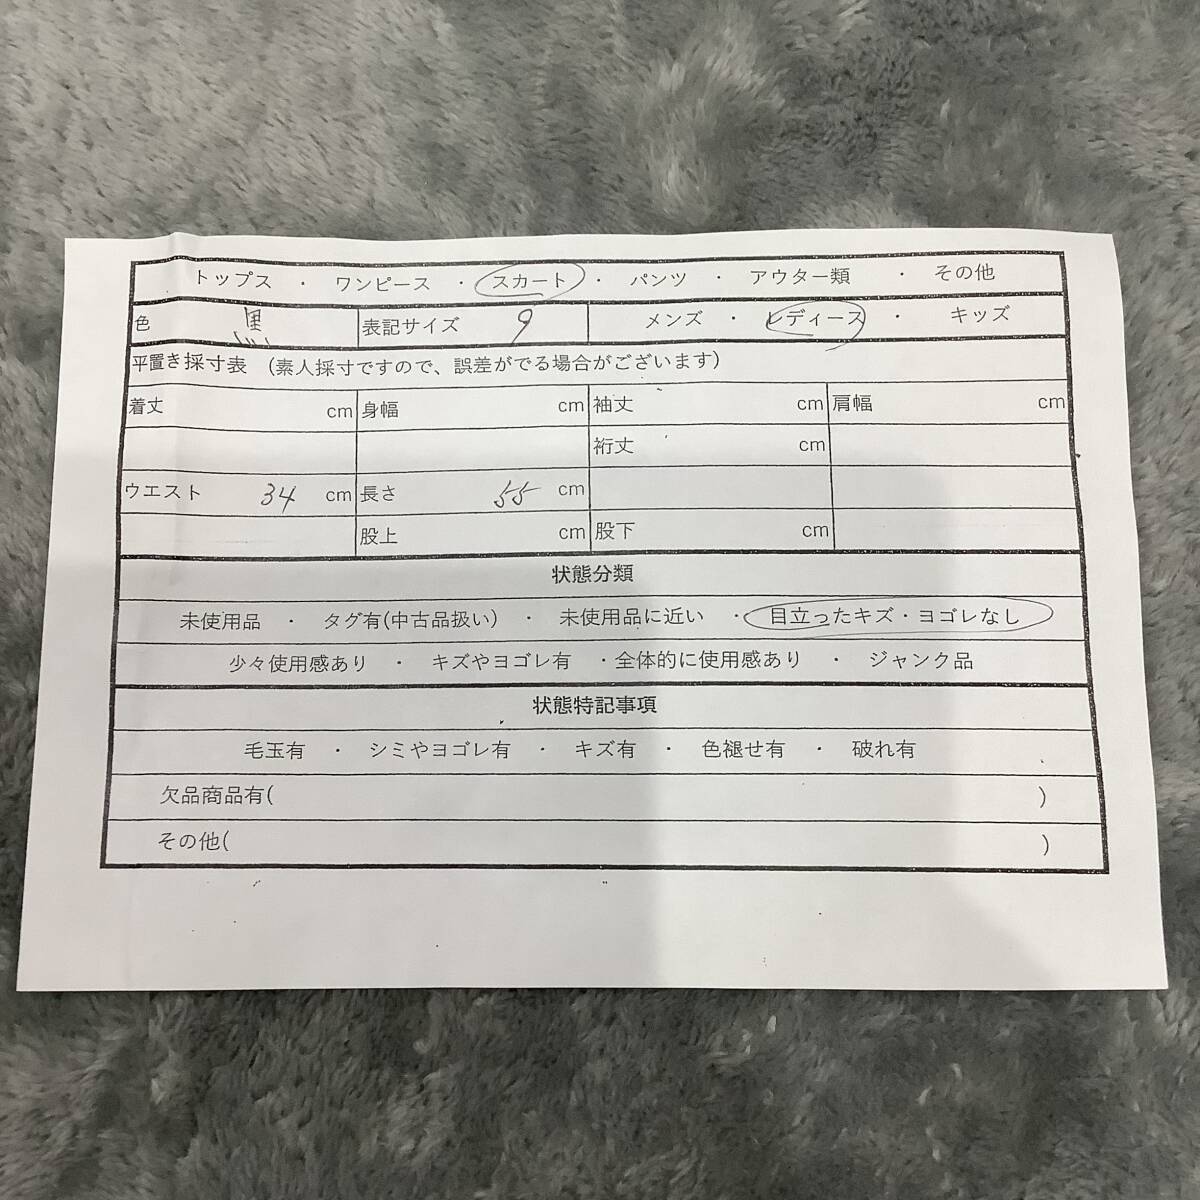 トップス ・ ワンピース ・ スカート ・ パンツ ・ アウター類 ・ その他
色 黒 表記サイズ 9 メンズ ・ レディース ・ キッズ
平置き採寸表 (素人採寸ですので、誤差がでる場合がございます)
着丈 cm 身幅 cm 袖丈 cm 肩幅 cm
裄丈 cm
ウエスト 34 cm 長さ 55 cm
股上 cm 股下 cm
状態分類
未使用品 ・ タグ有(中古品扱い) ・ 未使用品に近い ・ 目立ったキズ・ヨゴレなし
少々使用感あり ・ キズやヨゴレ有 ・全体的に使用感あり ・ ジャンク品
状態特記事項
毛玉有 ・ シミやヨゴレ有 ・ キズ有 ・ 色褪せ有 ・ 破れ有
欠品商品有( )
その他( )